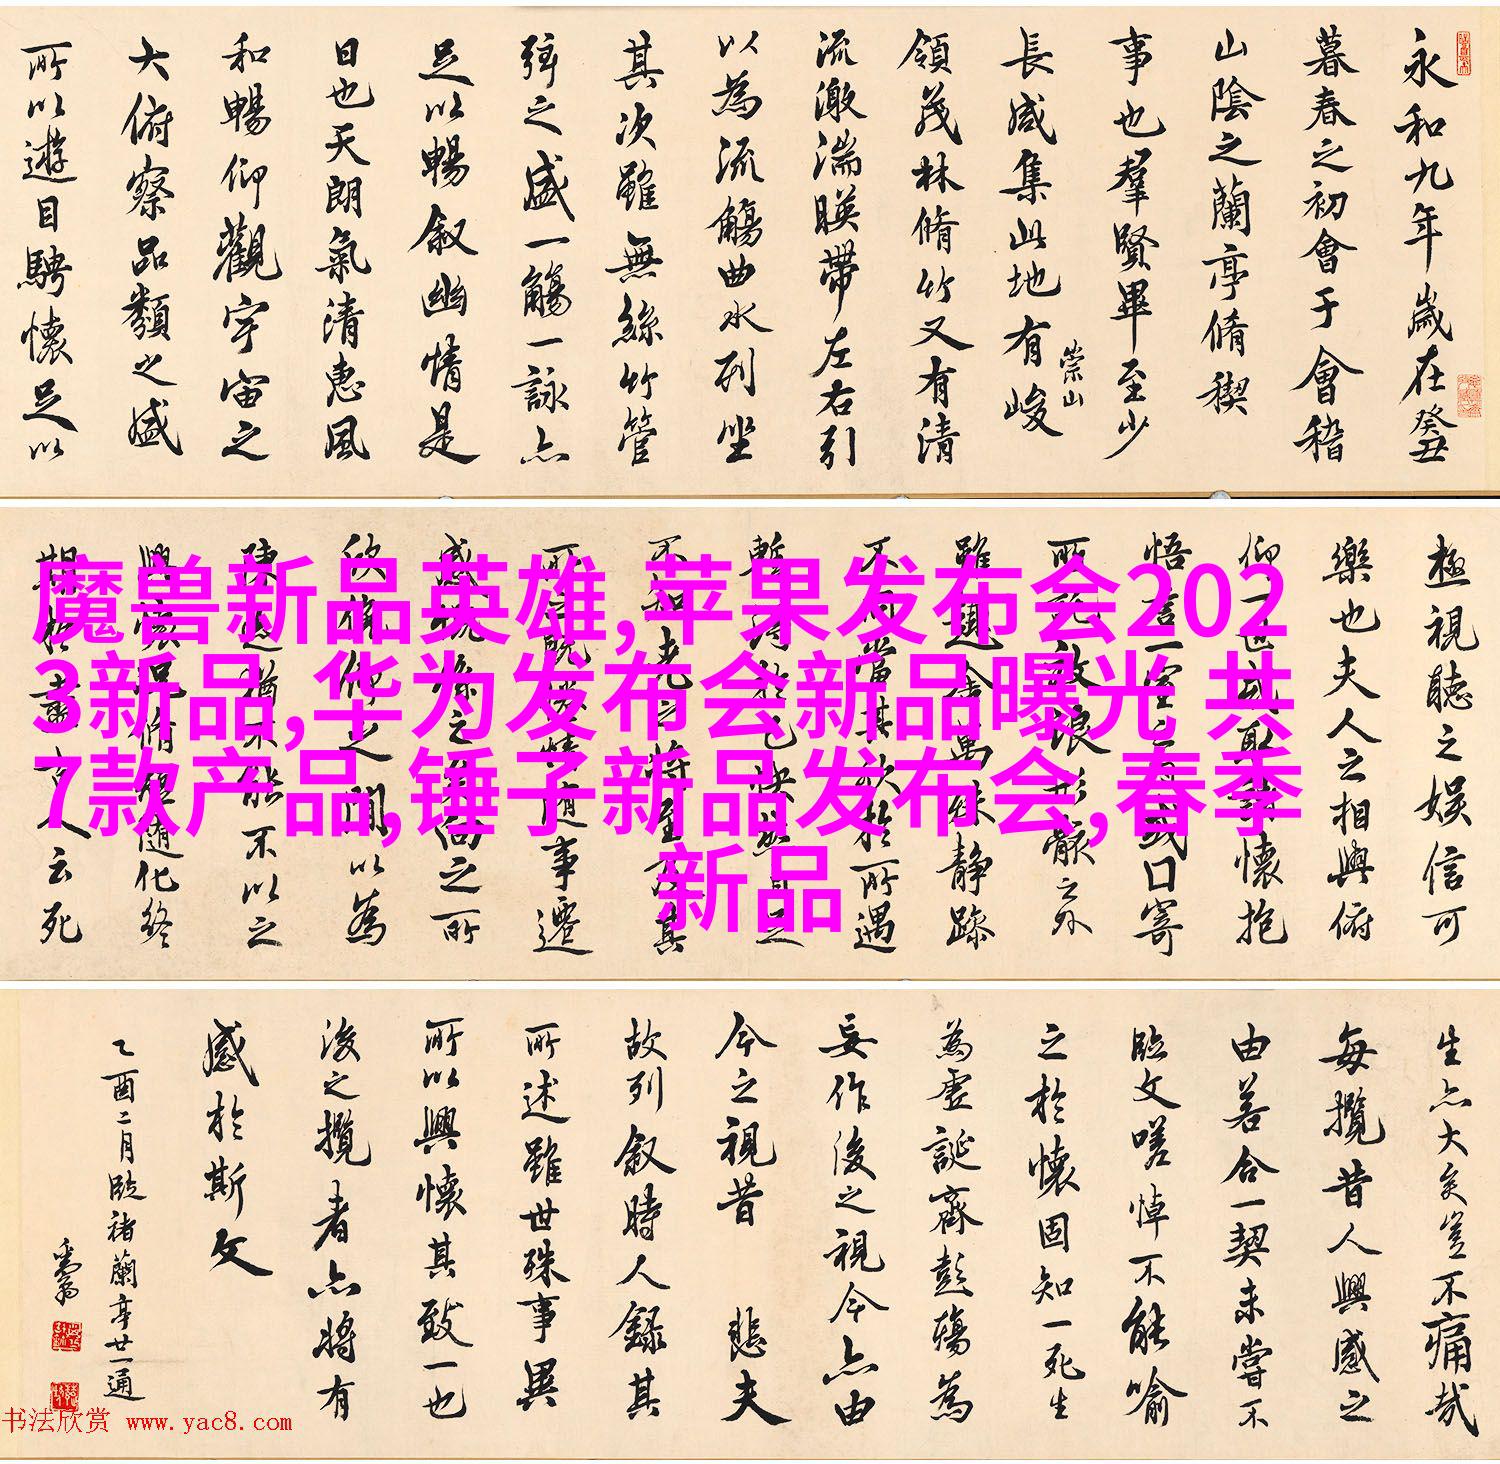 永和九年歲在癸丑
暮春之初會于會稽
山陰之蘭亭脩稧
事也羣賢畢至少
長咸集此地有崇山峻
領茂林脩竹又有清
流激湍暎帶左右引
以為流觴曲水列坐
其次雖無絲竹管
弦之盛一觴一詠亦
足以暢叙幽情是
日也天朗氣清惠風
和暢仰觀宇宙之
大俯察品類之盛
所以遊目騁懷足以
極視聽之娛信可
樂也夫人之相與俯
仰一世或取諸懷抱
悟言一室之內或口寄
所託放浪形骸之外
雖趣舍萬殊靜躁
不同當其欣於所遇
暫得於己快然自足
不知老之將至及其
所之既惓情隨事遷
感慨係之矣向之所
欣俛仰之間以為
陳迹猶不能不以之
興懷況脩短隨化終
期於盡古人云死
魔兽新品英雄,苹果发布会202
3新品,华为发布会新品曝光 共
7款产品,锤子新品发布会,春季
新品
生亦大矣豈不痛哉
每攬昔人興感之
由若合一契未嘗不
臨文嗟悼不能喻
之於懷固知一死生
為虛誕齊彭殤為
妄作後之視今亦由
今之視昔 悲夫
故列叙時人錄其
所述雖世殊事異
所以興懷其致一也
後之攬者亦將有
感於斯文
乙酉二月臨褚蘭亭廿一通
书法欣赏 www.yac8.com